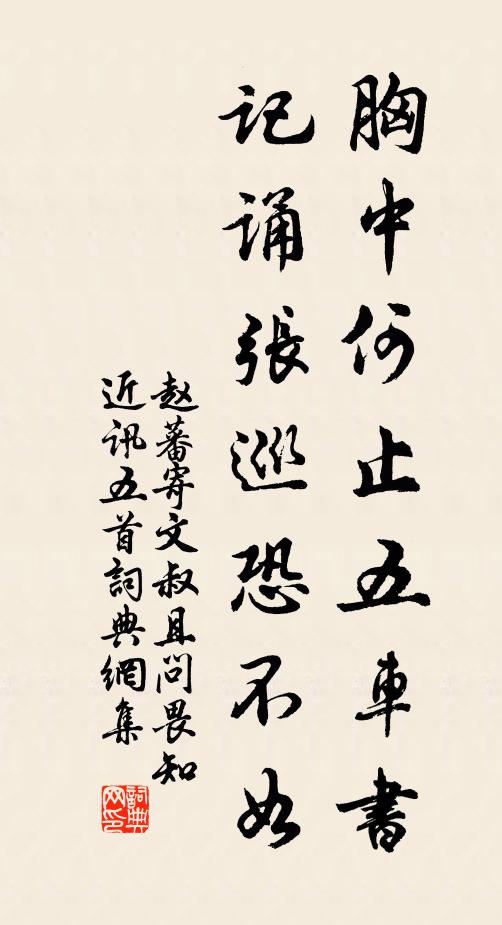 胸中何止五車書
記誦張巡恐不如
赵蕃寄文叔且問畏知
近訊五首詞典網集
詞典网印